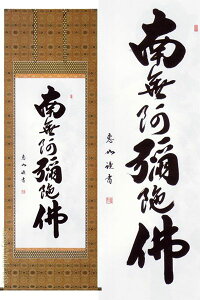 南無阿彌陀佛
恵山謹書
南無阿彌陀佛
恵山謹書